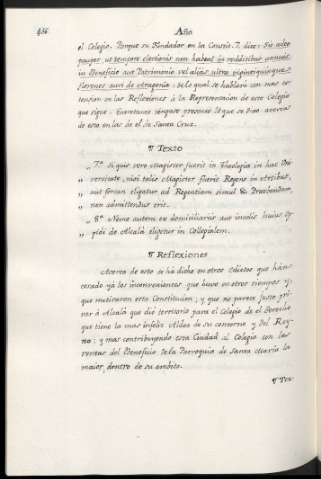 486 Año
el Colegio. Porque su Fundador en la Constit. 7. dice: Sic adeo
pauper ut tempore electionis non habeat in redditibus annuis
in Beneficio aut Patrimonio vel alias ultra viginti quinque
florenos auri de Aragonia: de lo qual se hablará con mas ex-
tension en las Reflexiones à la Representacion de este Colegio
que sigue. Excusanse siempre presente lo que se dixo acerca
de esto en las de el de Santa Cruz.
¶ Texto
„ 7.ª Si quis vero Magister fuerit in Theologia in hac Vni-
„ versitate, nisi talis Magister fuerit Regens in Artibus,
„ aut forsan eligatur ad Regentiam simul & Praebendam,
„ non admittendus erit.
„ 8.ª Nemo autem ex domiciliariis aut incolis huius Op-
„ pidi de Alcalà eligetur in Collegialem.
¶ Reflexiones
Acerca de esto se ha dicho en otros Colegios que han
cesado yà los inconvenientes que huvo en otros tiempos y
que motivaron esta Constitucion; y que no parece justo pri-
var à Alcalà que diò territorio para el Colegio de el Derecho
que tiene la mas infeliz Aldea de su contorno y del Rey-
no: y mas contribuyendo esta Ciudad al Colegio con las
rentas del Beneficio de la Parroquia de Santa Maria la
maior, dentro de su ambito.
¶ Tex